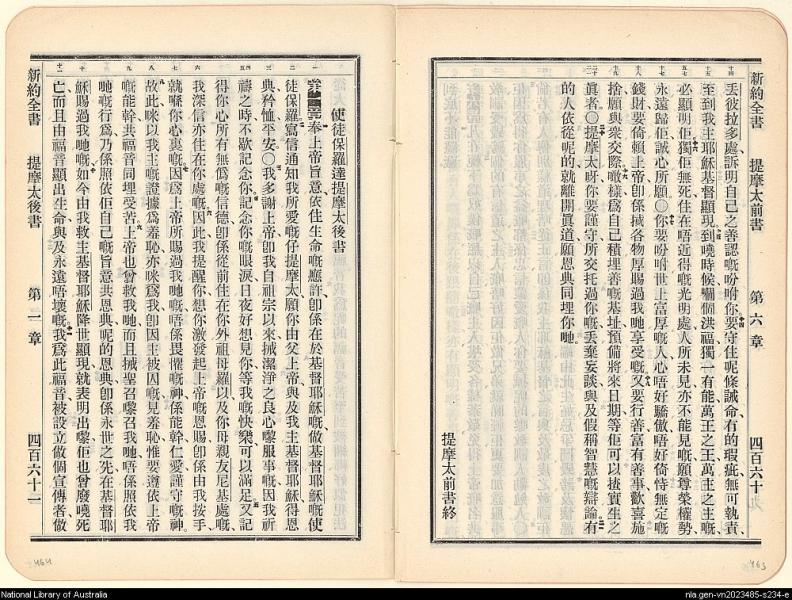 新約全書 提摩太前書 第六章 四百六十
丟彼拉多處訴明自己之善認嘅吩咐你要守住呢條誡命有的瑕疵無可執責
至到我主耶穌基督顯現到嘵時候嗰個洪福獨一有能萬王之王萬主之主嘅
必顯明佢獨佢無死住在唔近得嘅光明處人所未見亦不能見嘅願尊榮權勢
永遠歸佢誠心所願〇你要吩咐世上富厚嘅人心唔好驕傲唔好倚恃無定嘅
錢財要倚賴上帝卽係搣各物厚賜過我哋享受嘅又要行善富有善事歡喜施
捨願與衆交際噉樣爲自己積埋善嘅基址預備將來日期等佢可以揸實生之
眞者〇提摩太呀你要謹守所交托過你嘅丟棄妄談與及假稱智慧嘅辯論有
的人依從呢的就離開眞道願恩典同埋你哋
提摩太前書終
使徒保羅達提摩太後書
奉上帝旨意依住生命嘅應許卽係在於基督耶穌嘅做基督耶穌嘅使
徒保羅寫信通知我所愛嘅仔提摩太願你由父上帝與及我主基督耶穌得恩
典矜恤平安〇我多謝上帝卽我自祖宗以來搣潔淨之良心嚟服事嘅因我祈
禱之時不歇記念你記念你嘅眼淚日夜好想見你等我嘅快樂可以滿足又記
得你心所有無僞嘅信德卽係從前住在你外祖母羅以及你母親友尼基處嘅
我深信亦住在你處嘅因此我提醒你想你激發起上帝嘅恩賜卽係由我按手
就喺你心裏嘅因爲上帝所賜過我哋嘅唔係畏懼嘅神係能幹仁愛謹守嘅神
故此咪以我主嘅證據爲羞恥亦咪爲我卽因主被囚嘅見羞恥惟要遵依上帝
嘅能幹共福音同埋受苦上帝也曾救我哋而且搣聖召嚟召我哋唔係照依我
哋嘅行爲乃係照依佢自己嘅旨意共恩典呢的恩典卽係永世之先在基督耶
穌賜過我哋嘅如今由我救主基督耶穌降世顯現就表明出嚟佢也曾廢嘵死
亡而且由福音顯出生命與及永遠唔壞嘅我爲此福音被設立做個宣傳者做
新約全書 提摩太後書 第一章 四百六十一
464
463
National Library of Australia
nla.gen-vn2023485-s234-e